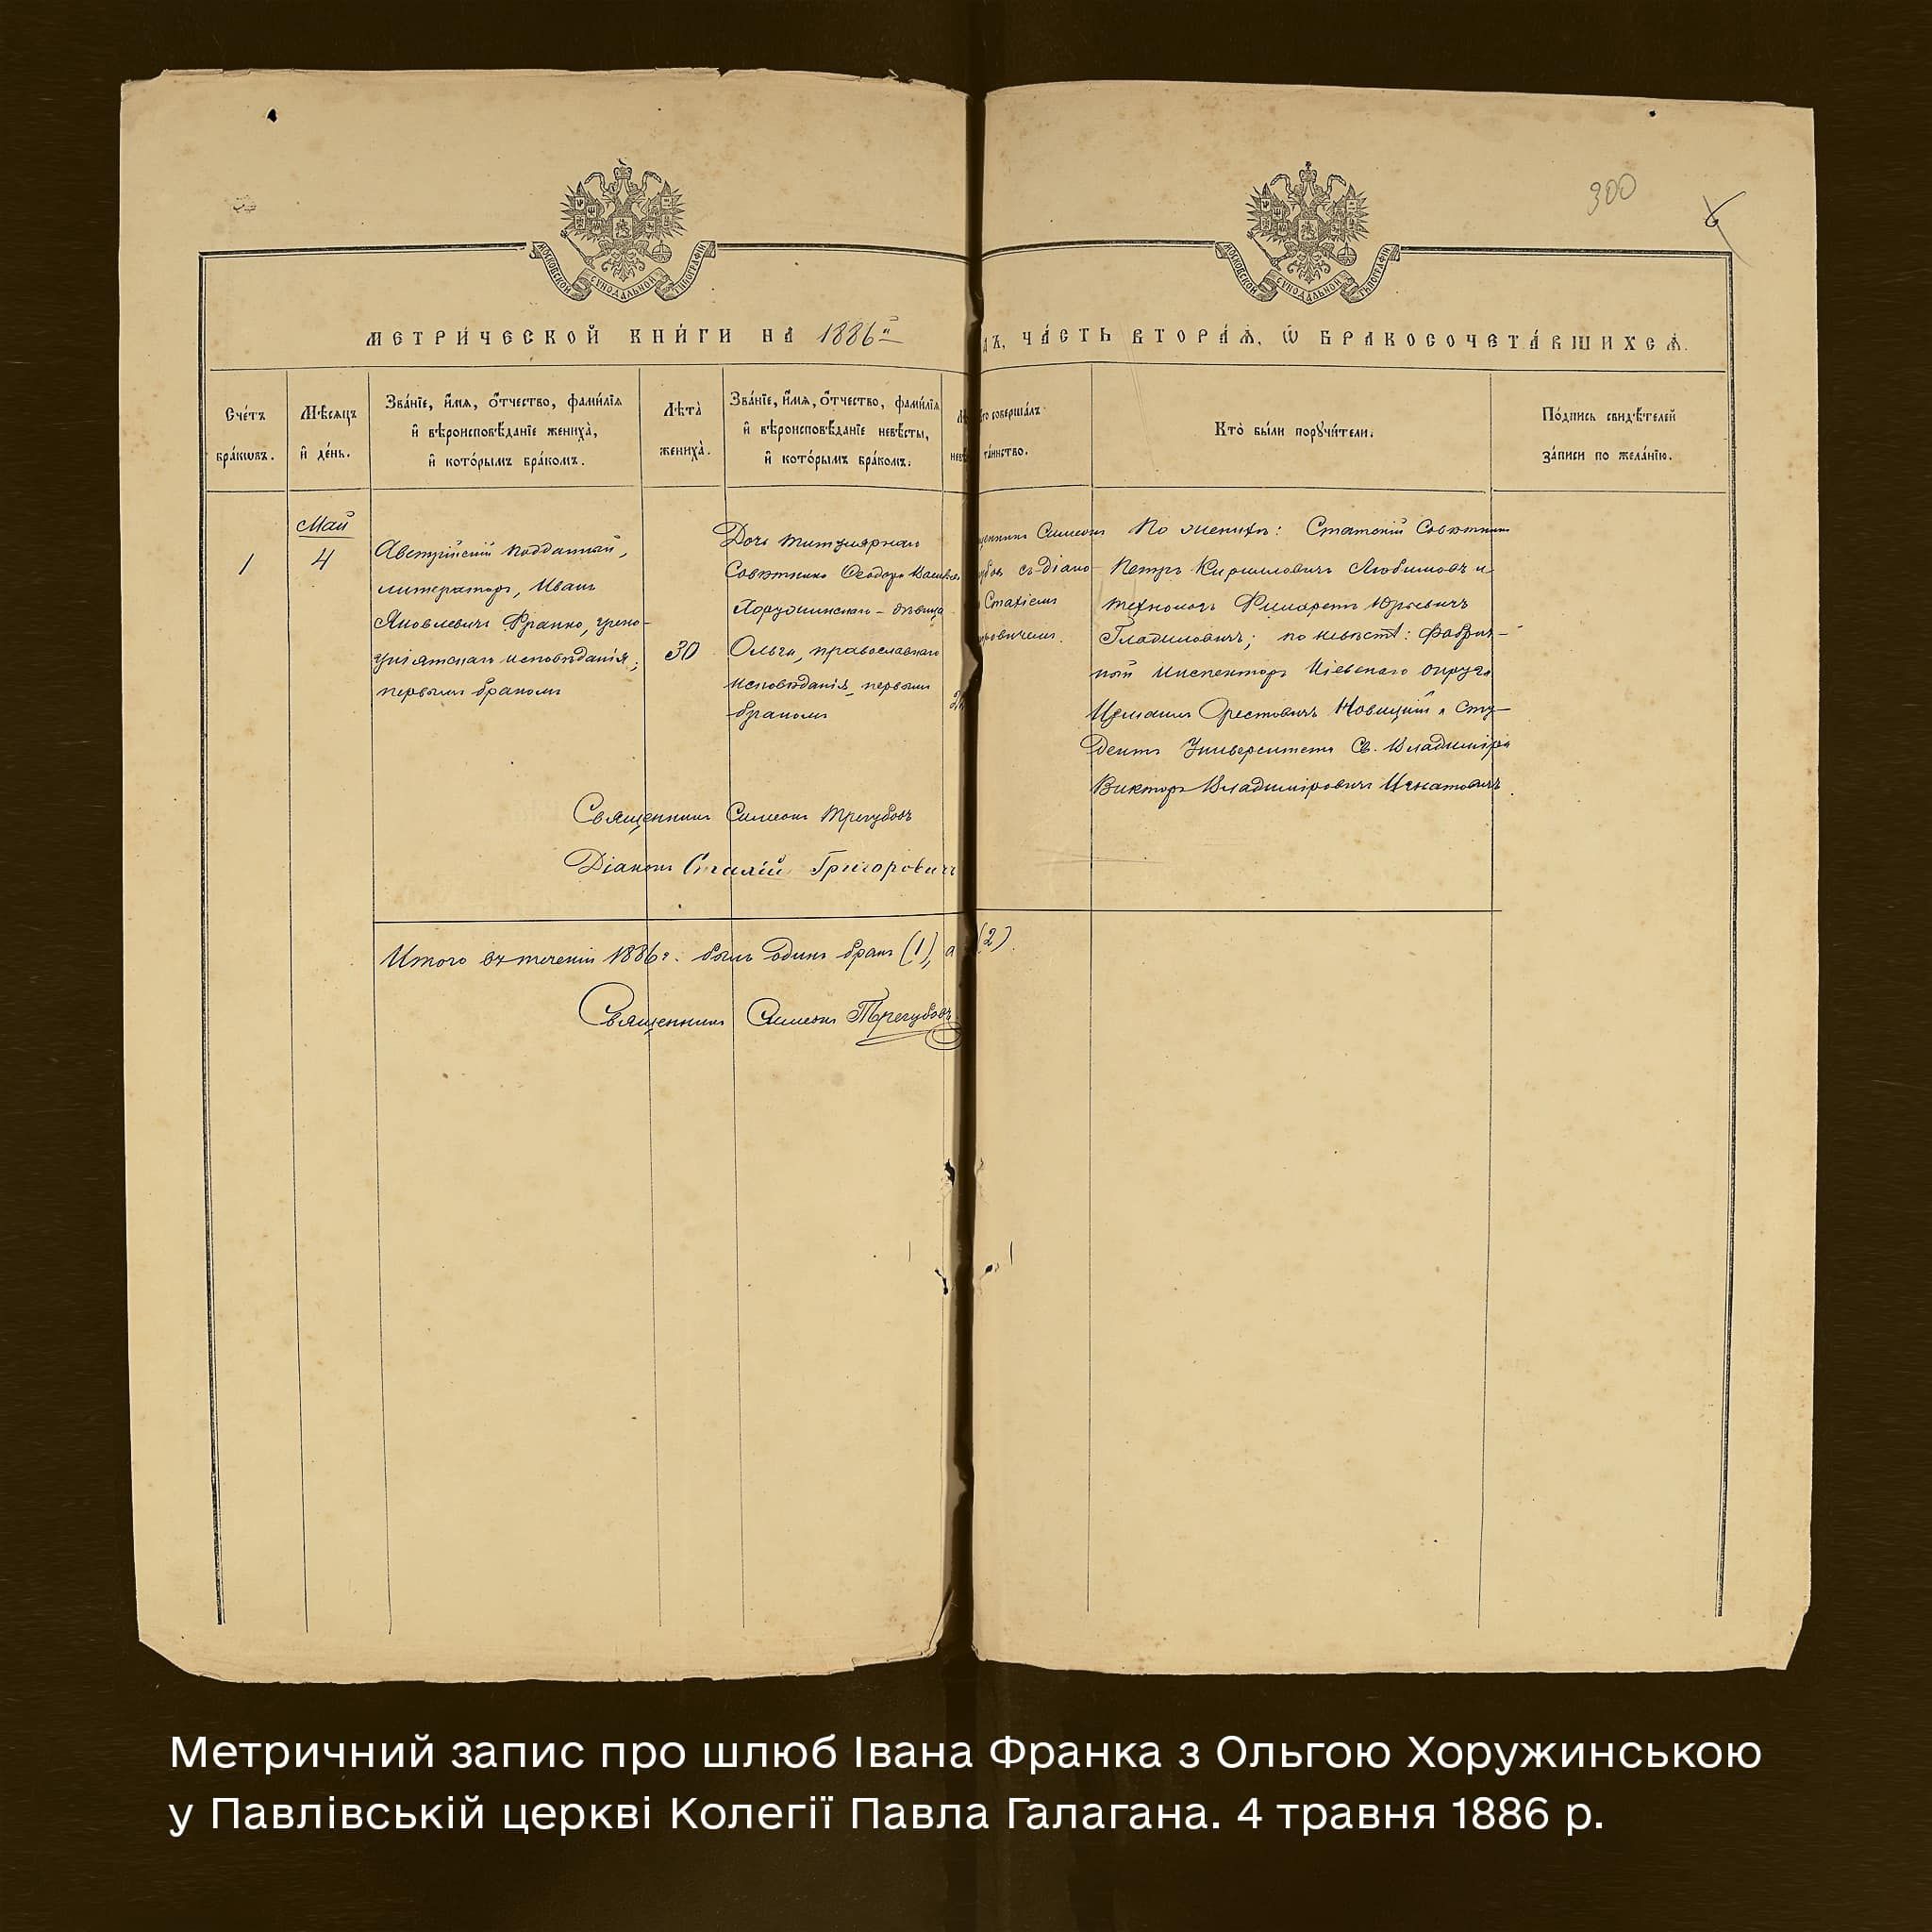 300
6
МОСКОВСКОЙ СѴНОДАЛЬНОЙ ТИПОГРАФІИ
МОСКОВСКОЙ СѴНОДАЛЬНОЙ ТИПОГРАФІИ
МЕТРИ́ЧЕСКОЙ КНИ́ГИ НА 1886й
ДЪ, ЧА́СТЬ ВТОРА́Ѧ, Ѽ БРАКОСОЧЕТА́ВШИХСѦ.
Сче́тъ
бра́кѡвъ.
Мѣ́сѧцъ
и҆ де́нь.
Зва́нїе, и҆́мѧ, ѻ҆́тчество, фами́лїѧ
и҆ вѣроисповѣ́данїе жениха̀,
и҆ кото́рымъ бра́комъ.
Лѣта̀
жениха̀.
Зва́нїе, и҆́мѧ, ѻ҆́тчество, фами́лїѧ
и҆ вѣроисповѣ́данїе невѣ́сты,
и҆ кото́рымъ бра́комъ.
Лѣ
невѣ
то соверша́лъ
та́инство.
Кто̀ бы́ли порꙋчи́тели.
По́дпись свидѣ́телей
за́писи по жела́нїю.
1
Май
4
Австрійскій подданный,
литераторъ, Иванъ
Яковлевичъ Франко, греко-
уніятскаго исповѣданія;
первымъ бракомъ
30
Дочь титулярнаго
Совѣтника Ѳеодора Василь
Хоружинскаго – дѣвица
Ольга, православнаго
исповѣданія, первымъ
бракомъ
2
щенникъ Симеонъ
убовъ съ діако-
Стахіемъ
оровичемъ.
По женихѣ: Статскій Совѣтникъ
Петръ Кирилловичъ Любимовъ и
технологъ Филаретъ Юрьевичъ
Гладиловичъ; по невѣстѣ: фабрич-
ный инспекторъ Кіевскаго округа
Орестовичъ Новицкій и Сту-
дентъ Университета Св. Владиміра
Викторъ Владиміровичъ Игнатовичъ.
Священникъ Симеонъ Трегубовъ
Діаконъ Стахій Григоровичъ
Итого въ теченіи 1886 г. былъ одинъ бракъ (1), а (2).
Священникъ Симеонъ Трегубовъ
Метричний запис про шлюб Івана Франка з Ольгою Хоружинською
у Павлівській церкві Колегії Павла Галагана. 4 травня 1886 р.